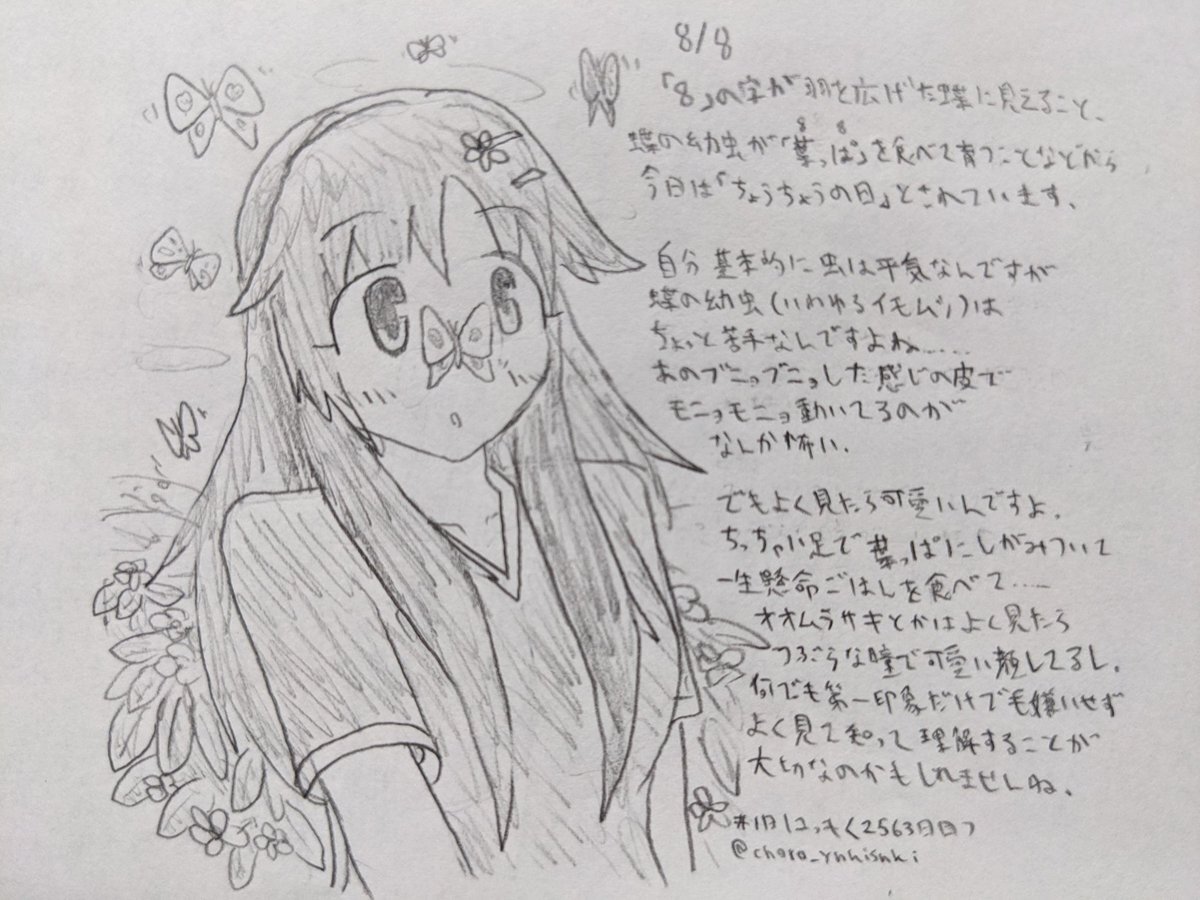 8/8
「8」の字が羽を広げた蝶に見えること、
蝶の幼虫が「葉っぱ」を食べて育つことなどから
8 8
今日は「ちょうちょうの日」とされています。
自分基本的に虫は平気なんですが
蝶の幼虫(いわゆるイモムシ)は
ちょっと苦手なんですよね……
あのブニョブニョした感じの皮で
モニョモニョ動いてるのが
なんか怖い.
でもよく見たら可愛いんですよ.
ちっちゃい足で葉っぱにしがみついて
一生懸命ごはんを食べて……
オオムラサキとかはよく見たら
つぶらな瞳で可愛い顔してるし.
何でも第一印象だけで毛嫌いせず
よく見て知って理解することが
大切なのかもしれませんね.
#1日1もく2563日目